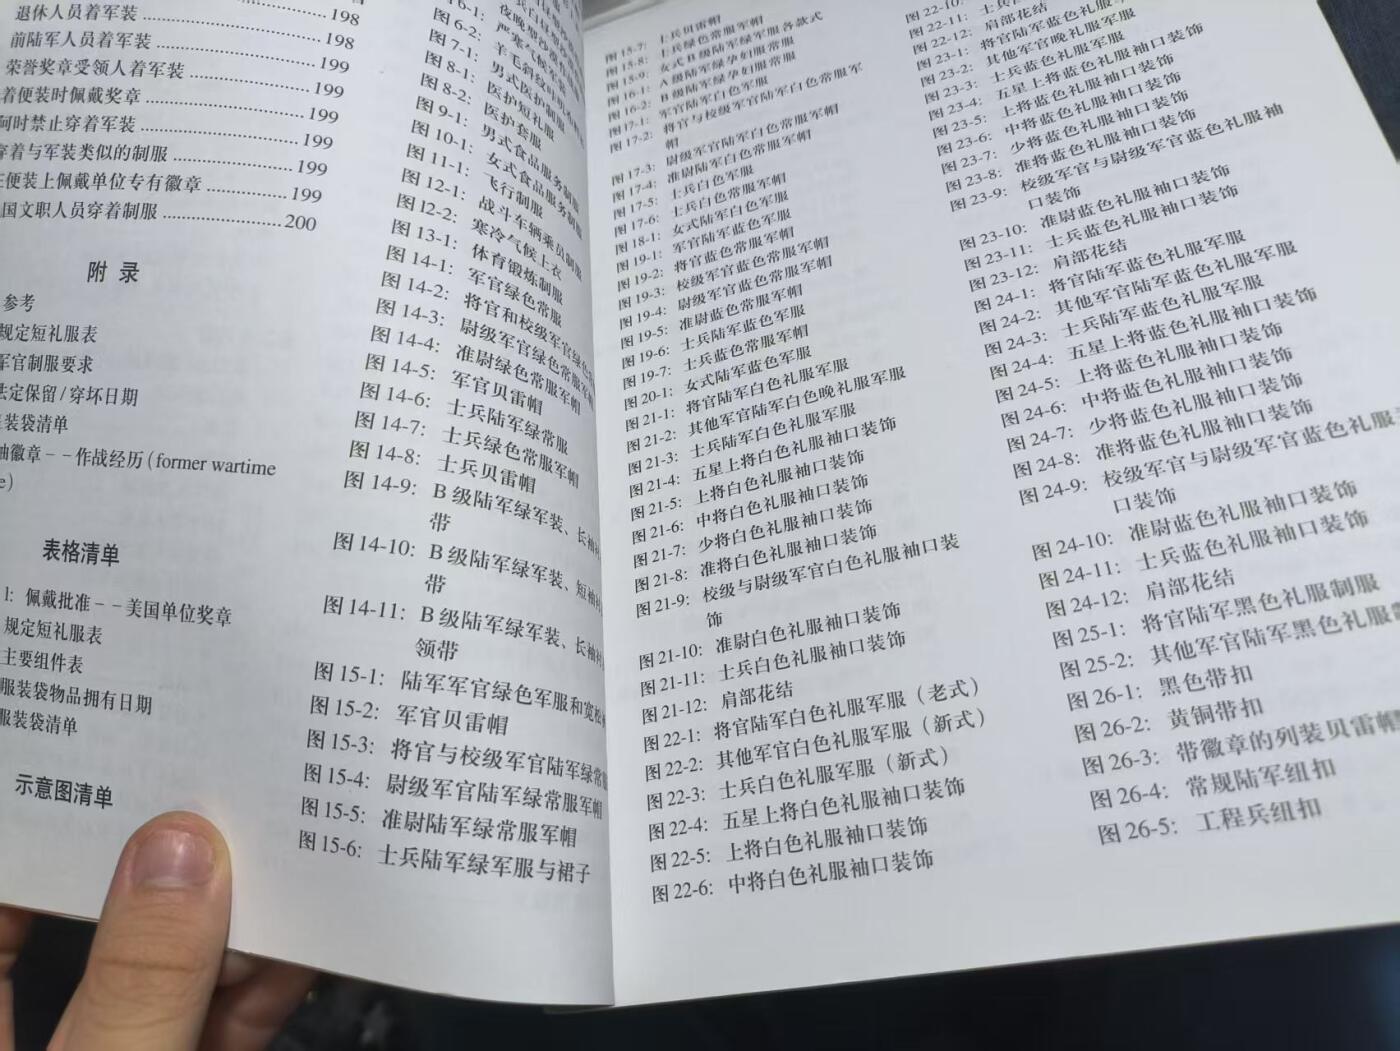 退休人员着军装 198
前陆军人员着军装 198
荣誉奖章受领人着军装 199
着便装时佩戴奖章 199
何时禁止穿着军装 199
穿着与军装类似的制服 199
在便装上佩戴单位专有徽章 199
国文职人员穿着制服 200
附 录
参考
规定短礼服表
军官制服要求
法定保留/穿坏日期
装袋清单
袖徽章--作战经历(former wartime
e)
表格清单
1: 佩戴批准--美国单位奖章
规定短礼服表
主要组件表
服装袋物品拥有日期
服装袋清单
示意图清单
图 6-2:
图 7-1: 严寒气候军装
图 8-1:
图 8-2: 男式医护制服
图 9-1: 医护短礼服
图 10-1: 医护套服
图 11-1: 男式食品服务制服
图 12-1: 女式食品服务制服
图 12-2: 飞行制服
图 13-1: 战斗车辆乘员制服
图 14-1: 寒冷气候上衣
图 14-2: 体育锻炼制服
图 14-3: 军官绿色常服
图 14-4: 将官和校级军官绿色
图 14-5: 尉级军官绿色常服军帽
图 14-6: 准尉绿色常服军帽
图 14-7: 军官贝雷帽
图 14-8: 士兵陆军绿常服
图 14-9: 士兵绿色常服军帽
士兵贝雷帽
B 级陆军绿军装、长袖
带
图 14-10: B 级陆军绿军装、短袖
带
图 14-11: B 级陆军绿军装、长袖
领带
图 15-1: 陆军军官绿色军服和宽松
图 15-2: 军官贝雷帽
图 15-3: 将官与校级军官陆军绿常
图 15-4: 尉级军官陆军绿常服军帽
图 15-5: 准尉陆军绿常服军帽
图 15-6: 士兵陆军绿军服与裙子
图 15-7: 士兵贝雷帽
图 15-8: 士兵绿色常服军帽
图 15-9: 女式 B 级陆军绿军服各款式
图 16-1: A 级陆军绿孕妇服常服
图 16-2: B 级陆军绿孕妇服
图 17-1: 军官陆军白色军服
图 17-2: 将官与校级军官陆军白色常服军
帽
图 17-3: 尉级军官陆军白色常服军帽
图 17-4: 准尉陆军白色常服军帽
图 17-5: 士兵白色军服
图 17-6: 士兵白色常服军帽
图 18-1: 女式陆军白色军服
图 19-1: 军官陆军蓝色军服
图 19-2: 将官蓝色常服军帽
图 19-3: 校级军官蓝色常服军帽
图 19-4: 尉级军官蓝色常服军帽
图 19-5: 准尉蓝色常服军帽
图 19-6: 士兵陆军蓝色军服
图 19-7: 士兵蓝色常服军帽
图 20-1: 女式陆军蓝色军服
图 21-1: 将官陆军白色礼服军服
图 21-2: 其他军官陆军白色晚礼服军服
图 21-3: 士兵陆军白色礼服军服
图 21-4: 五星上将白色礼服袖口装饰
图 21-5: 上将白色礼服袖口装饰
图 21-6: 中将白色礼服袖口装饰
图 21-7: 少将白色礼服袖口装饰
图 21-8: 准将白色礼服袖口装饰
图 21-9: 校级与尉级军官白色礼服袖口装
饰
图 21-10: 准尉白色礼服袖口装饰
图 21-11: 士兵白色礼服袖口装饰
图 21-12: 肩部花结
图 22-1: 将官陆军白色礼服军服（老式）
图 22-2: 其他军官白色礼服军服（新式）
图 22-3: 士兵白色礼服军服（新式）
图 22-4: 五星上将白色礼服袖口装饰
图 22-5: 上将白色礼服袖口装饰
图 22-6: 中将白色礼服袖口装饰
图 22-10:
图 22-11:
图 22-12: 肩部花结
图 23-1: 将官陆军蓝色礼服军服
图 23-2: 其他军官晚礼服军服
图 23-3: 士兵蓝色礼服军服
图 23-4: 五星上将蓝色礼服袖口装饰
图 23-5: 上将蓝色礼服袖口装饰
图 23-6: 中将蓝色礼服袖口装饰
图 23-7: 少将蓝色礼服袖口装饰
图 23-8: 准将蓝色礼服袖口装饰
图 23-9: 校级军官与尉级军官蓝色礼服袖
口装饰
图 23-10: 准尉蓝色礼服袖口装饰
图 23-11: 士兵蓝色礼服袖口装饰
图 23-12: 肩部花结
图 24-1: 将官陆军蓝色礼服军服
图 24-2: 其他军官陆军蓝色礼服军服
图 24-3: 士兵陆军蓝色礼服军服
图 24-4: 五星上将蓝色礼服袖口装饰
图 24-5: 上将蓝色礼服袖口装饰
图 24-6: 中将蓝色礼服袖口装饰
图 24-7: 少将蓝色礼服袖口装饰
图 24-8: 准将蓝色礼服袖口装饰
图 24-9: 校级军官与尉级军官蓝色礼服
口装饰
图 24-10: 准尉蓝色礼服袖口装饰
图 24-11: 士兵蓝色礼服袖口装饰
图 24-12: 肩部花结
图 25-1: 将官陆军黑色礼服制服
图 25-2: 其他军官陆军黑色礼服
图 26-1: 黑色带扣
图 26-2: 黄铜带扣
图 26-3: 带徽章的列装贝雷帽
图 26-4: 常规陆军纽扣
图 26-5: 工程兵纽扣